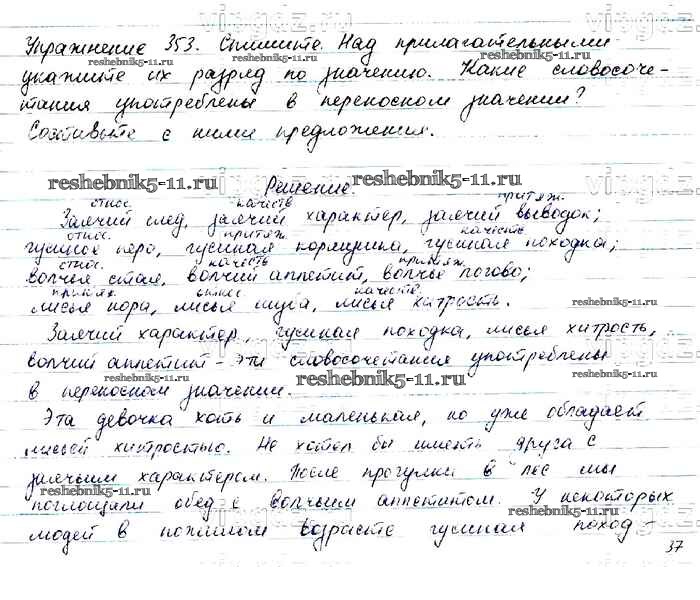 Упражнение 353. Спишите. Над прилагательными
укажите их разряд по значению. Какие словосоче-
тания употреблены в переносном значении?
Составьте с ними предложения.
Решение.
относ. качеств. притяж.
Заячий след, заячий характер, заячий выводок;
относ. притяж. качеств.
гусиное перо, гусиная кормушка, гусиная походка;
относ. качеств. притяж.
волчья стая, волчий аппетит, волчье логово;
притяж. относ. качеств.
лисья нора, лисья шуба, лисья хитрость.
Заячий характер, гусиная походка, лисья хитрость,
волчий аппетит - эти словосочетания употреблены
в переносном значении.
Эта девочка хоть и маленькая, но уже обладает
лисьей хитростью. Не хотел бы иметь друга с
заячьим характером. После прогулки в лес мы
поглощали обед с волчьим аппетитом. У некоторых
людей в пожилом возрасте гусиная поход-
37
reshebnik5-11.ru